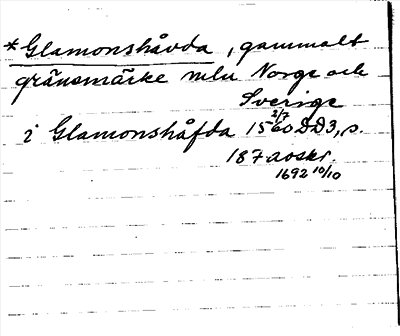 *Glamonshåvda, gammalt
gränsmärke mln Norge och
Sverige
i Glamonshåfda 15 2/7 60 DD3, s.
187 avskr.
1692 10/10